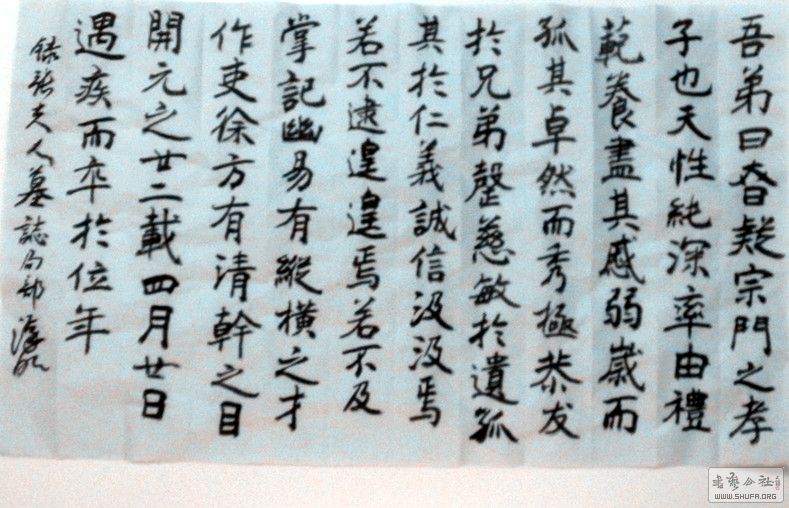 吾弟曰昏疑宗門之孝
子也天性純深率由禮
範養盡其慼弱嵗而
孤其卓然而秀極恭友
於兄弟罄慈敏於遺孤
其於仁義誠信汲汲焉
若不逮遑遑焉若不及
掌記幽易有縱橫之才
作吏徐方有清幹之目
開元之廿二載四月廿日
遇疾而卒於位年
夫人墓誌局部
WWW.SHUFA.ORG